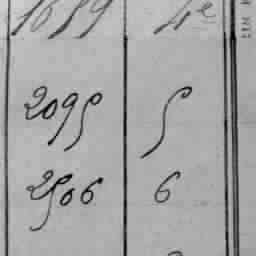 1659 4e
2095 5
2506 6